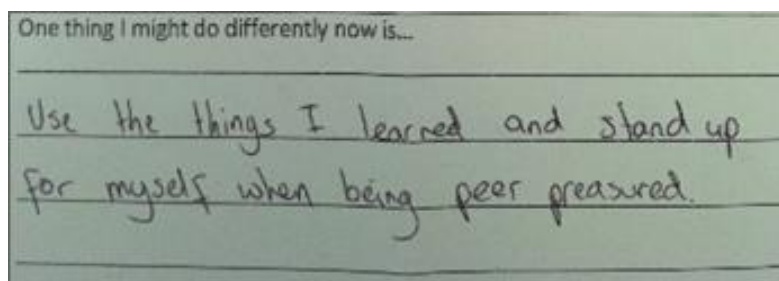 One thing I might do differently now is...
Use the things I learned and stand up
for myself when being peer preasured.